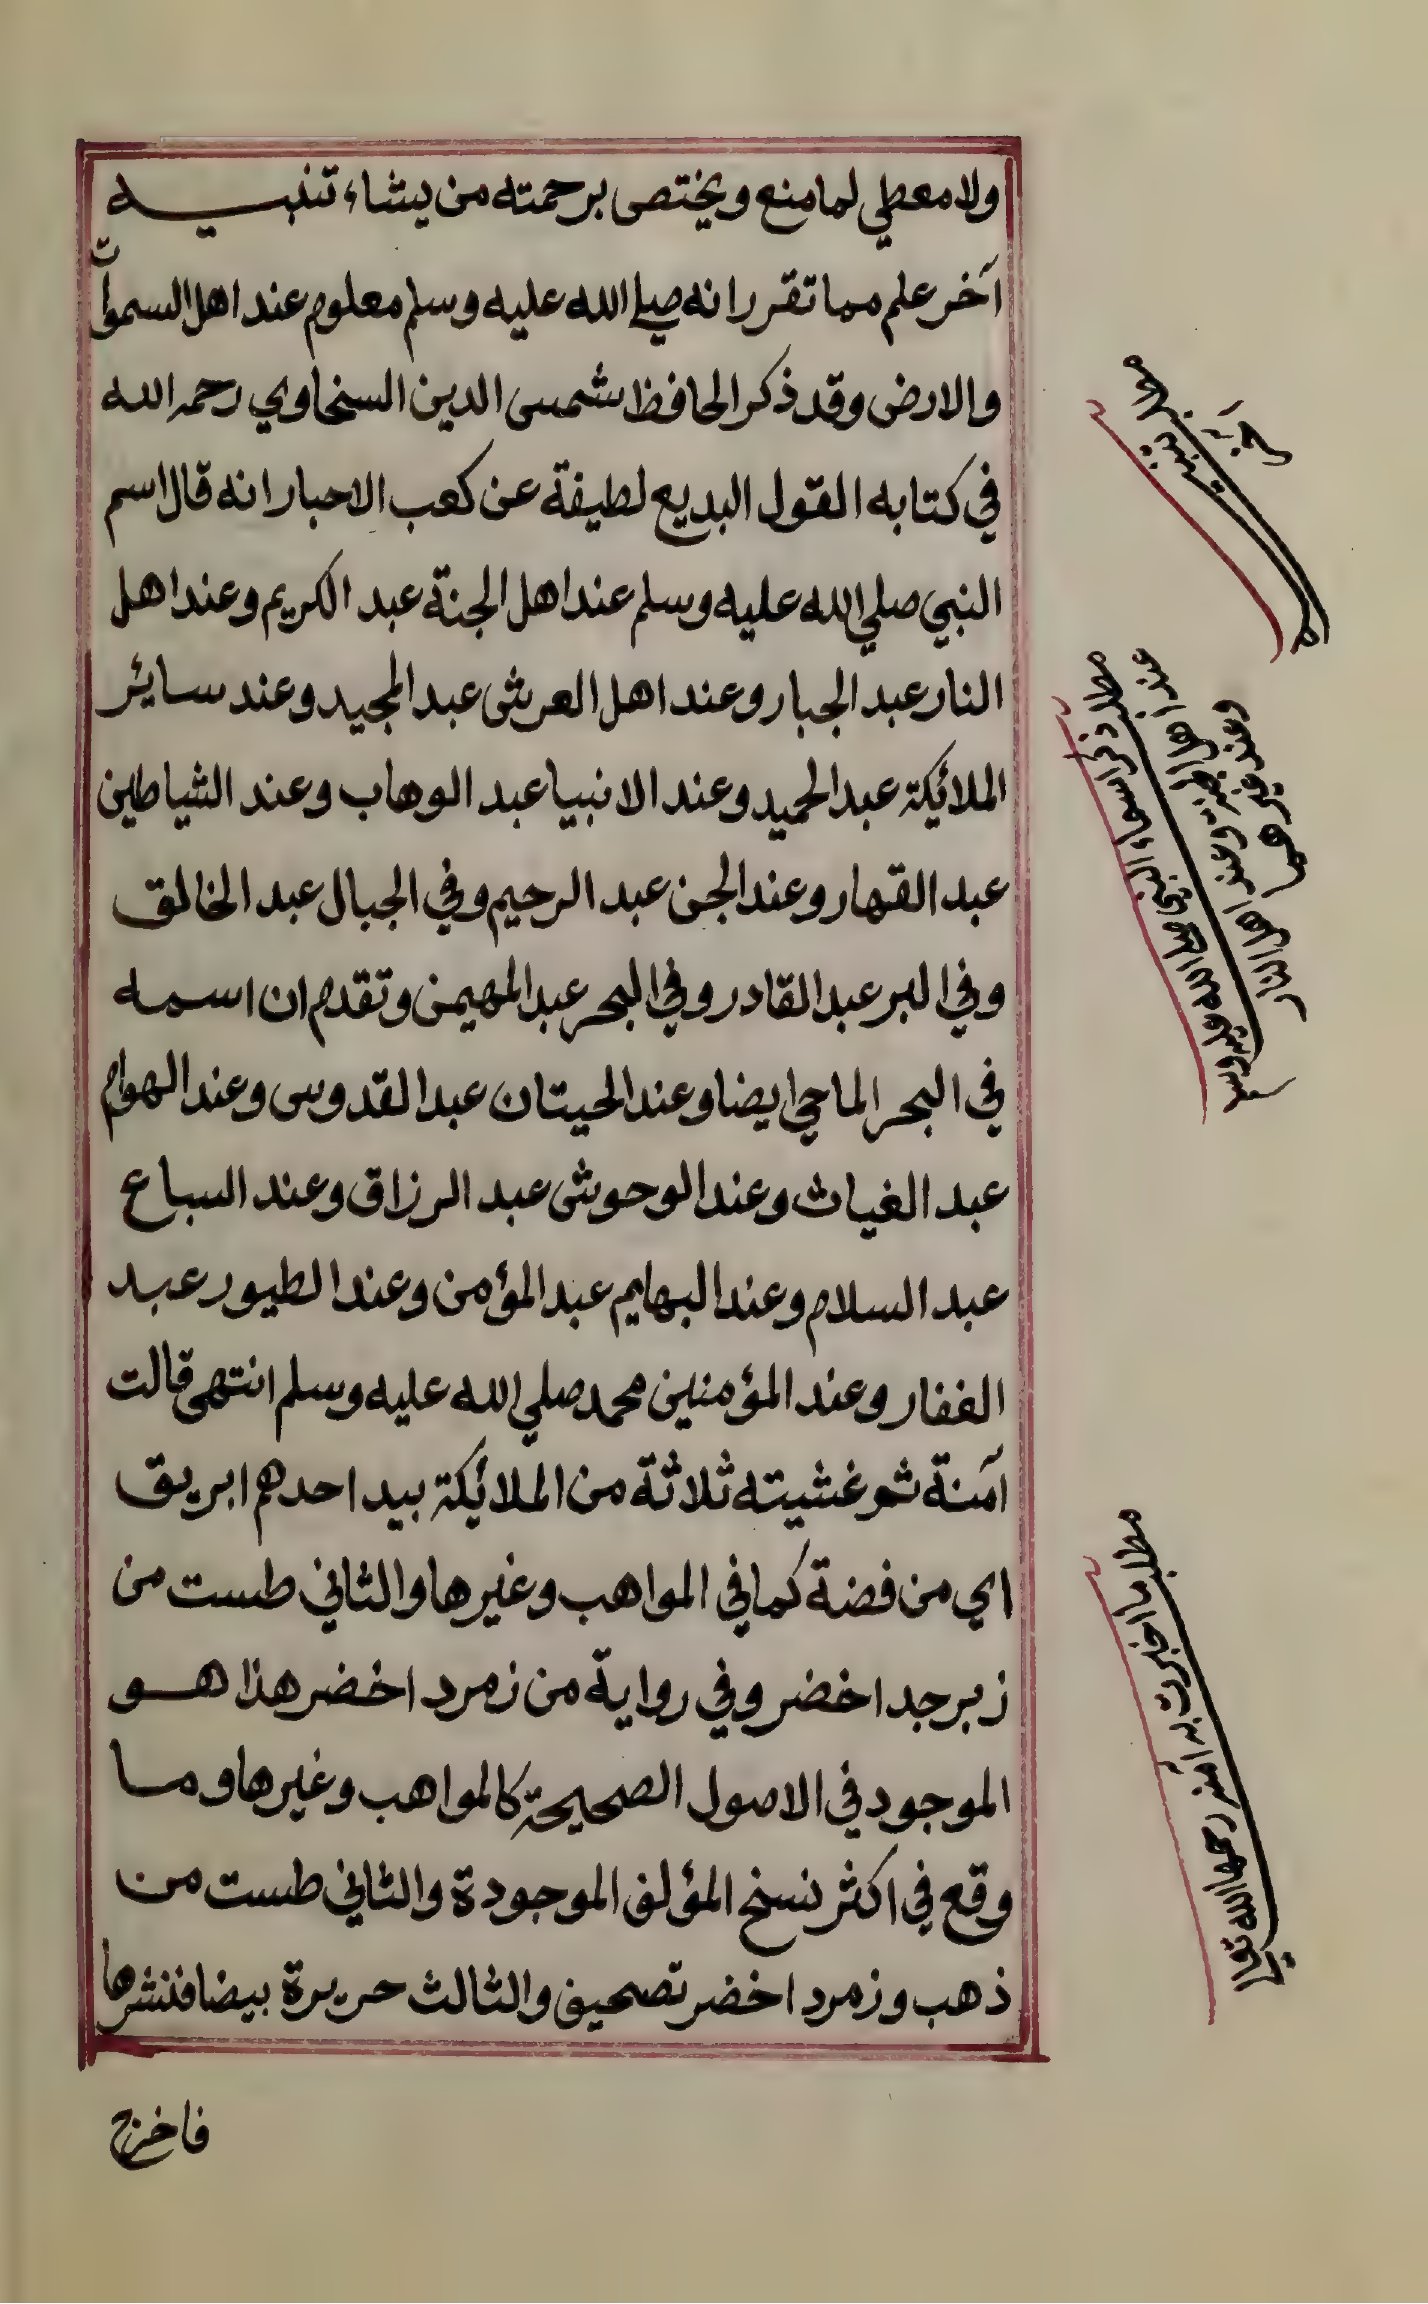 ولا معطي لما منع ويختص برحمته من يشاء تنبيه
آخر علم مما تقرر انه صلى الله عليه وسلم معلوم عند اهل السموات
والارض وقد ذكر الحافظ شمس الدين السخاوي رحمه الله
في كتابه القول البديع لطيفة عن كعب الاحبار انه قال اسم
النبي صلي الله عليه وسلم عند اهل الجنة عبد الكريم وعند اهل
النار عبد الجبار وعند اهل العرش عبد المجيد وعند سائر
الملائكة عبد الحميد وعند الانبيا عبد الوهاب وعند الشياطين
عبد القهار وعند الجن عبد الرحيم وفي الجبال عبد الخالق
وفي البر عبد القادر وفي البحر عبد المهيمن وتقدم ان اسمه
في البحر الماحي ايضا وعند الحيتان عبد القدوس وعند الهوام
عبد الغياث وعند الوحوش عبد الرزاق وعند السباع
عبد السلام وعند البهايم عبد المؤمن وعند الطيور عبد
الغفار وعند المؤمنين محمد صلي الله عليه وسلم انتهى قالت
آمنة ثم غشيته ثلاثة من الملائكة بيد احدهم ابريق
اي من فضة كما في المواهب وغيرها والثاني طست من
زبرجد اخضر وفي رواية من زمرد اخضر هذا هو
الموجود في الاصول الصحيحة كالمواهب وغيرها وما
وقع في اكثر نسخ المؤلف الموجودة والثاني طست من
ذهب وزمرد اخضر تصحيف والثالث حريرة بيضا فنشرها
فاخرج
مطلب تنبيه
آخر
مطلب ذكر اسماء النبي صلى الله عليه وسلم
عند اهل الجنة وعند اهل النار
وعند غيرهما
مطلب ما اخبرت به آمنه رحمها الله تعالى